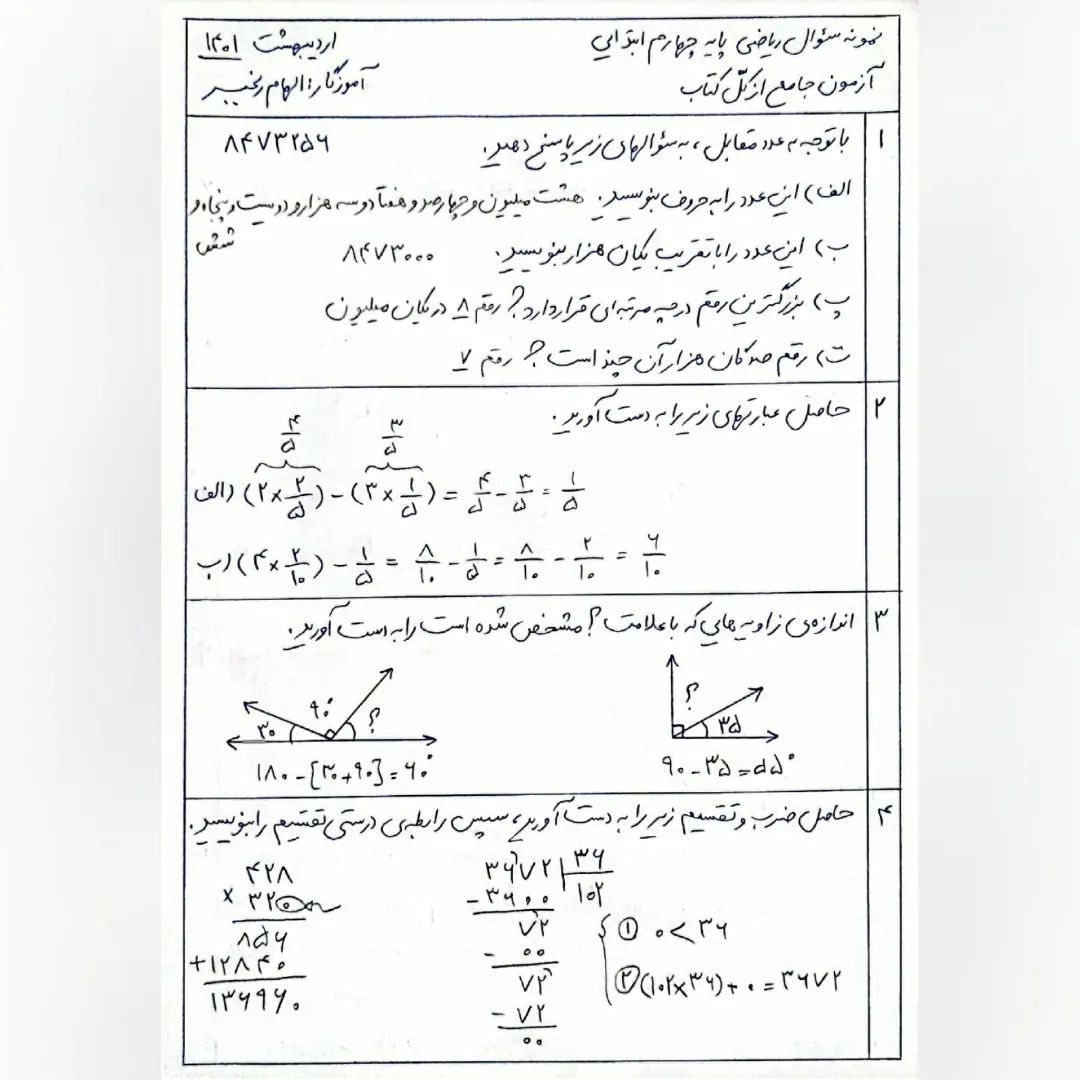 نمونه سئوال ریاضی پایه چهارم ابتدایی اردیبهشت ۱۴۰۱
آزمون جامع از کلّ کتاب آموزگار: الهام رنجبر
۱ با توجه به عدد مقابل، به سئوالهای زیر پاسخ دهید. ۸۴۷۳۲۵۶
الف) این عدد را به حروف بنویسید. هشت میلیون و چهارصد و هفتاد و سه هزار و دویست و پنجاه و
شش
ب) این عدد را با تقریب یکان هزار بنویسید. ۸۴۷۳۰۰۰
پ) بزرگترین رقم در چه مرتبه ای قرار دارد؟ رقم ۸ در یکان میلیون
ت) رقم صدگان هزار آن چند است؟ رقم ۷
۲ حاصل عبارتهای زیر را به دست آورید.
۴/۵ ۳/۵
الف) (۲×۲/۵)-(۳×۱/۵)=۴/۵-۳/۵=۱/۵
ب) (۴×۲/۱۰)-۱/۵=۸/۱۰-۱/۵=۸/۱۰-۲/۱۰=۶/۱۰
۳ اندازه‌ی زاویه هایی که با علامت ؟ مشخص شده است را به دست آورید.
؟ ۳۵
۹۰-۳۵=۵۵°
۳۰ ۹۰° ؟
۱۸۰-[۳۰+۹۰]=۶۰°
۴ حاصل ضرب و تقسیم زیر را به دست آورید، سپس رابطه‌ی درستی تقسیم را بنویسید.
۳۶۷۲ ۳۶
۱۰۲
-۳۶۰۰
۷۲
-۰۰
۷۲
-۷۲
۰۰
① ۰<۳۶
② (۱۰۲×۳۶)+۰=۳۶۷۲
۴۲۸
×۳۲۰
۸۵۶
+۱۲۸۴۰
۱۳۶۹۶۰